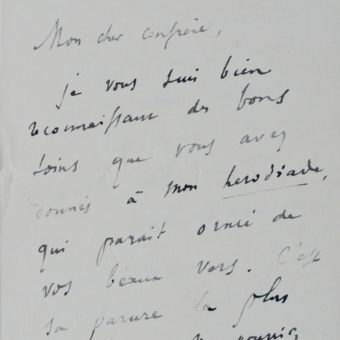 Mon cher confrère,
je vous suis bien
reconnaissant des bons
soins que vous avez
donnés à mon herodiade,
qui parait ornée de
vos beaux vers. C'est
sa parure la plus